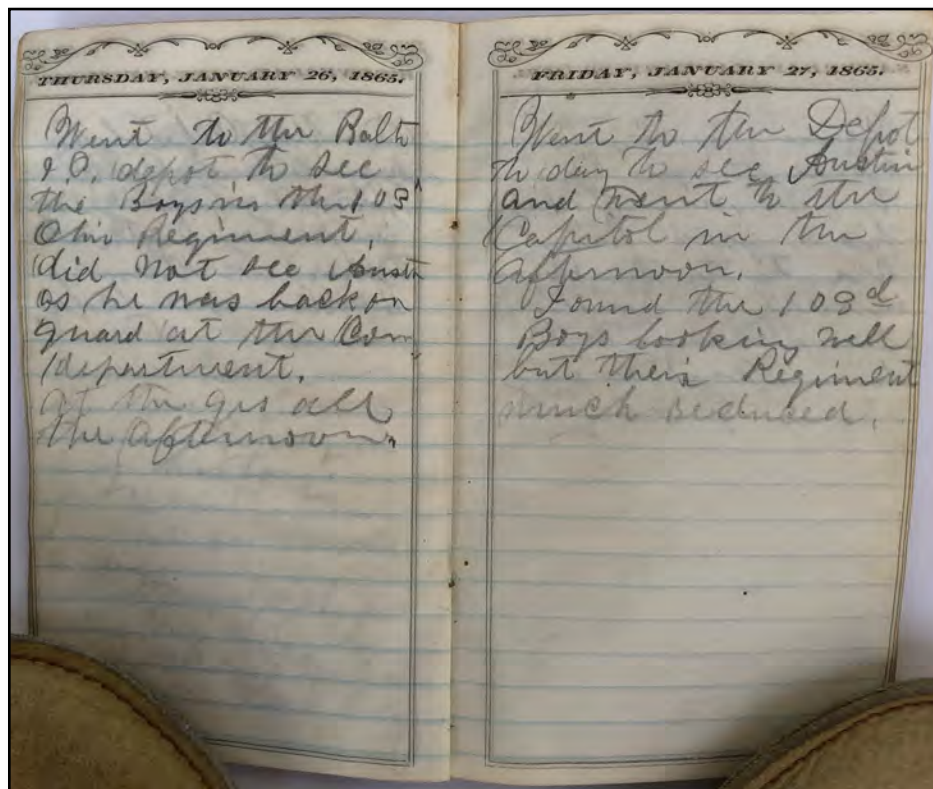 THURSDAY, JANUARY 26, 1865.
Went to the Balt
depot to see
the Boys in the 103
Ohio Regiment,
did not see Austi
as he was back on
guard at the Com
department.
at the all
the afternoon.
FRIDAY, JANUARY 27, 1865.
Went to the Depot
to day to see Austin
and went to the
Capitol in the
afternoon.
Found the 103d
Boys looking well
but their Regiment
much reduced.